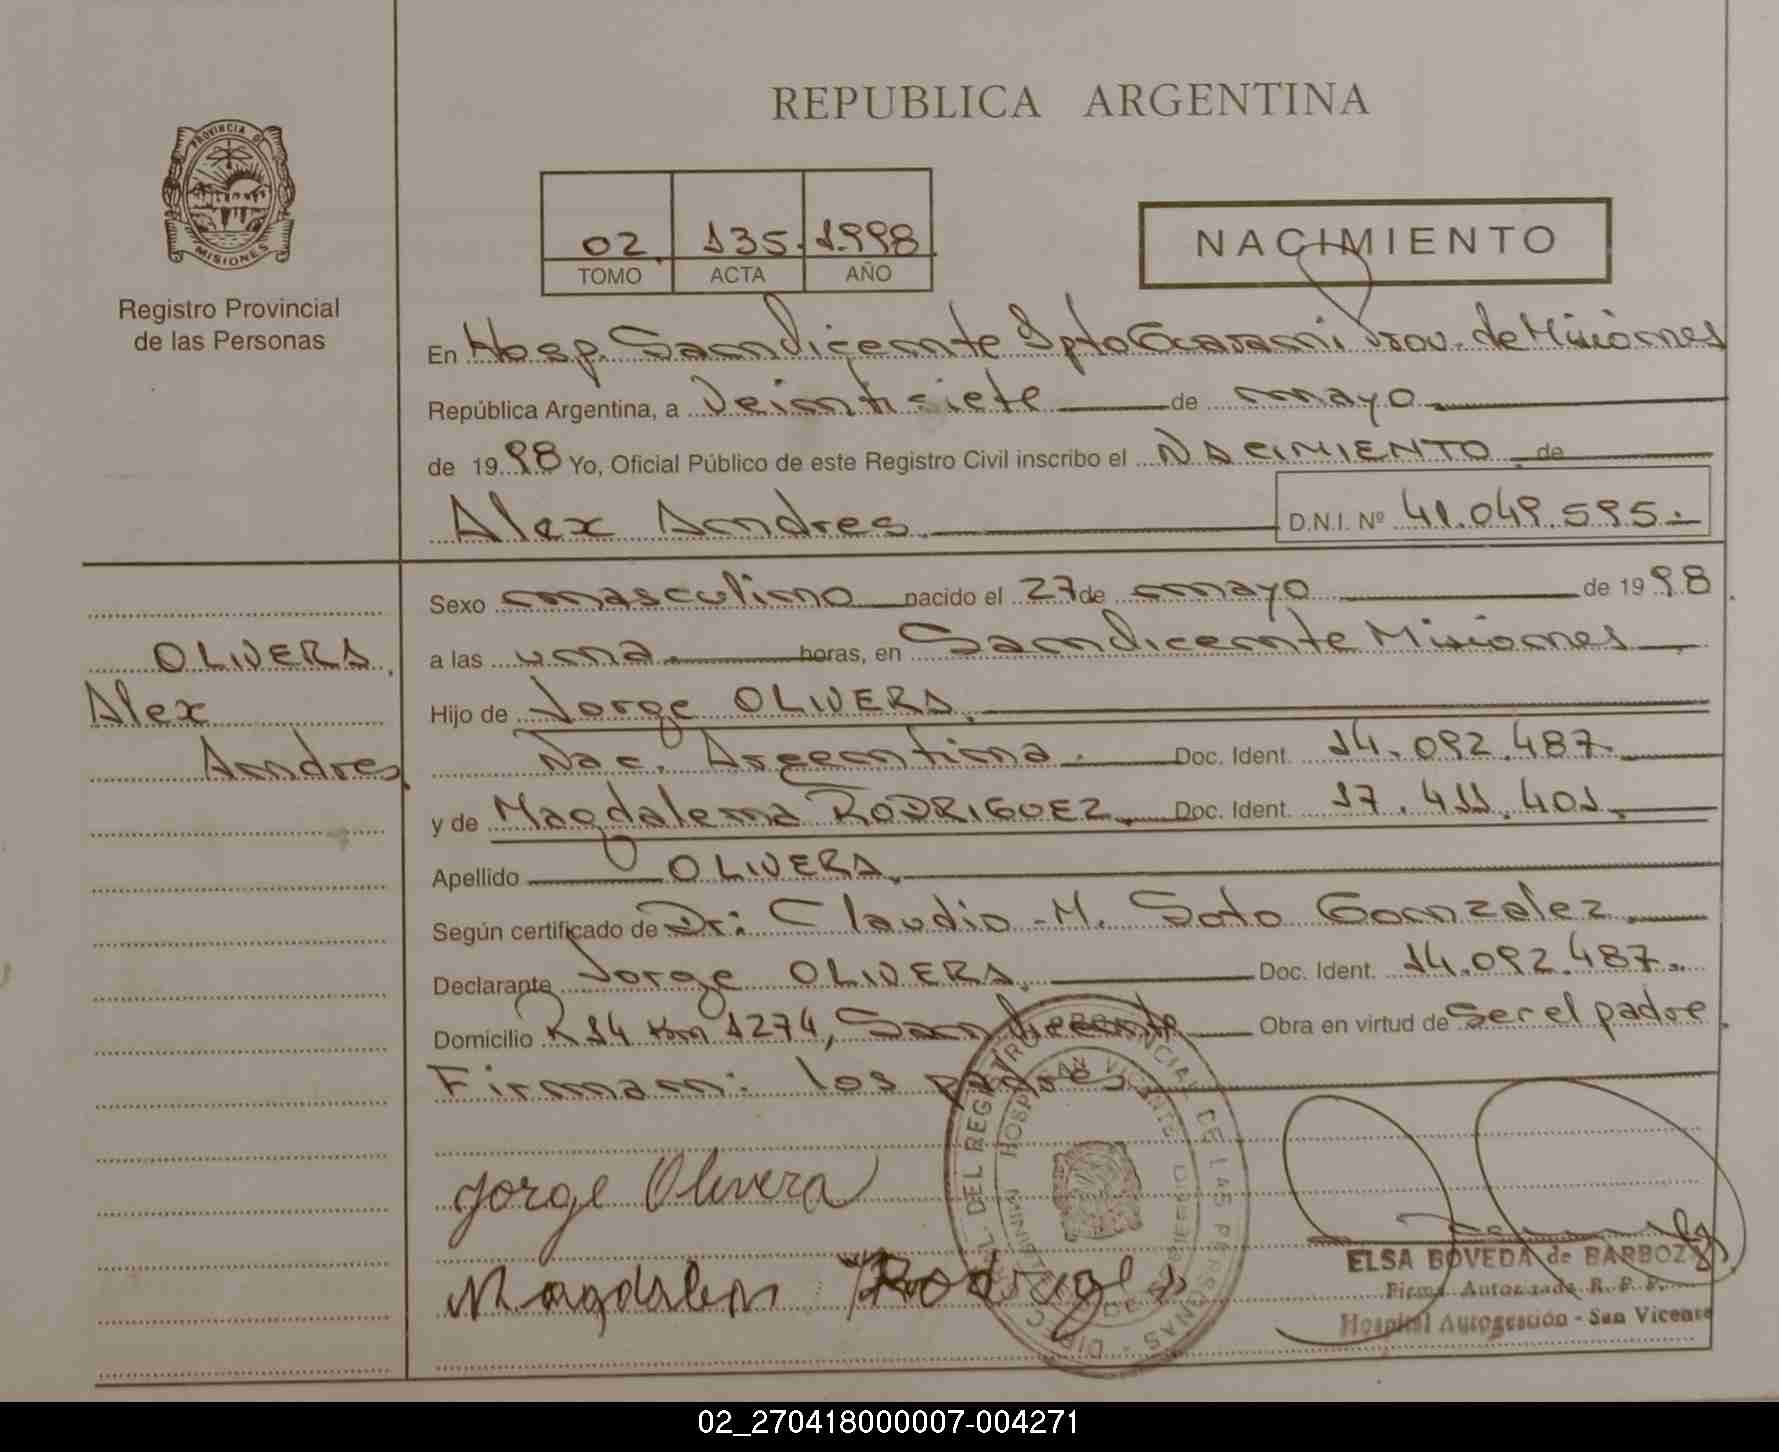 REPUBLICA ARGENTINA
PROVINCIA DE MISIONES
Registro Provincial
de las Personas
02. 135. 1.998.
TOMO ACTA AÑO
NACIMIENTO
En Hosp. San Vicente Dpto Guarani Prov. de Misiones
República Argentina, a Veintisiete de mayo
de 1998 Yo, Oficial Público de este Registro Civil inscribo el NACIMIENTO de
Alex Andres. D.N.I. Nº 41.049.595.-
Sexo masculino nacido el 27 de mayo de 1998.
a las una. horas, en San Vicente Misiones
Hijo de Jorge OLIVERA.
Nac. Argentina. Doc. Ident. 14.092.487.
y de Magdalena RODRIGUEZ. Doc. Ident. 17.411.401.
Apellido OLIVERA.
Según certificado de Dr: Claudio M. Soto Gonzalez.
Declarante Jorge OLIVERA. Doc. Ident. 14.092.487.
Domicilio R 14 Km 1274, San Vicente Obra en virtud de Ser el padre.
Firman: los padres
OLIVERA,
Alex
Andres.
Jorge Olivera
Magdalen Rodrigez
ELSA BOVEDA de BARBOZA
Firma Autorizada R. P. P.
Hospital Autogestión - San Vicente
DEL REGISTRO PROVINCIAL DE LAS PERSONAS
HOSPITAL SAN VICENTE
02_270418000007-004271